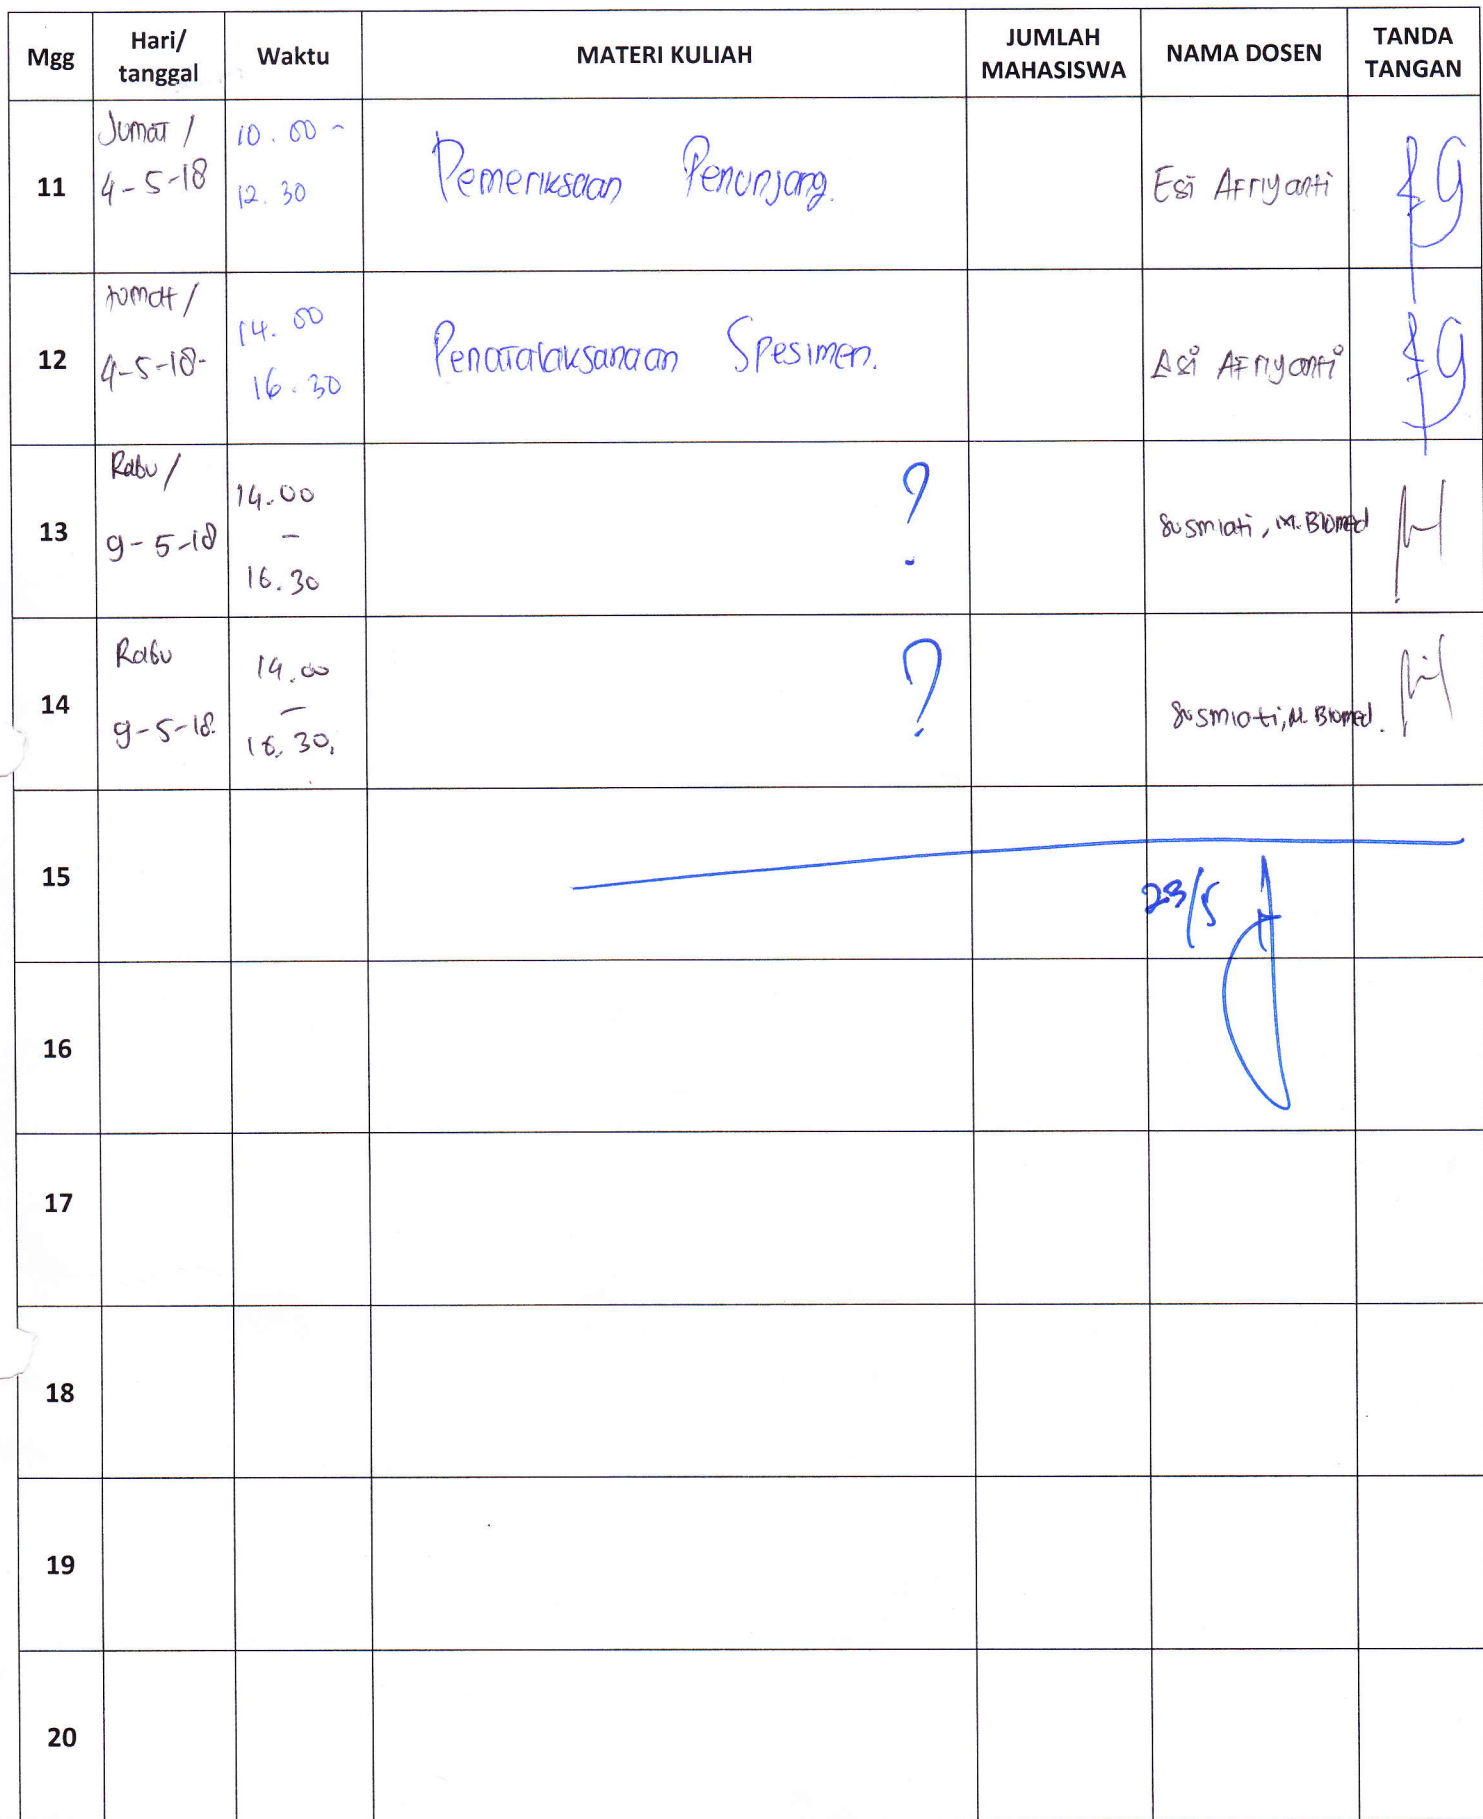 Mgg Hari/ tanggal Waktu MATERI KULIAH JUMLAH MAHASISWA NAMA DOSEN TANDA TANGAN
11 Jumat / 4-5-18 10.00 - 12.30 Pemeriksaan Penunjang. Esi Afriyanti
12 Jumat / 4-5-18- 14.00 16.30 Penatalaksanaan Spesimen. Esi Afriyanti
13 Rabu / 9-5-18 14.00 - 16.30 ? Susmiati, M. Biomed
14 Rabu 9-5-18. 14.00 - 16.30. ? Susmiati, M. Biomed.
15 23/5
16
17
18
19
20